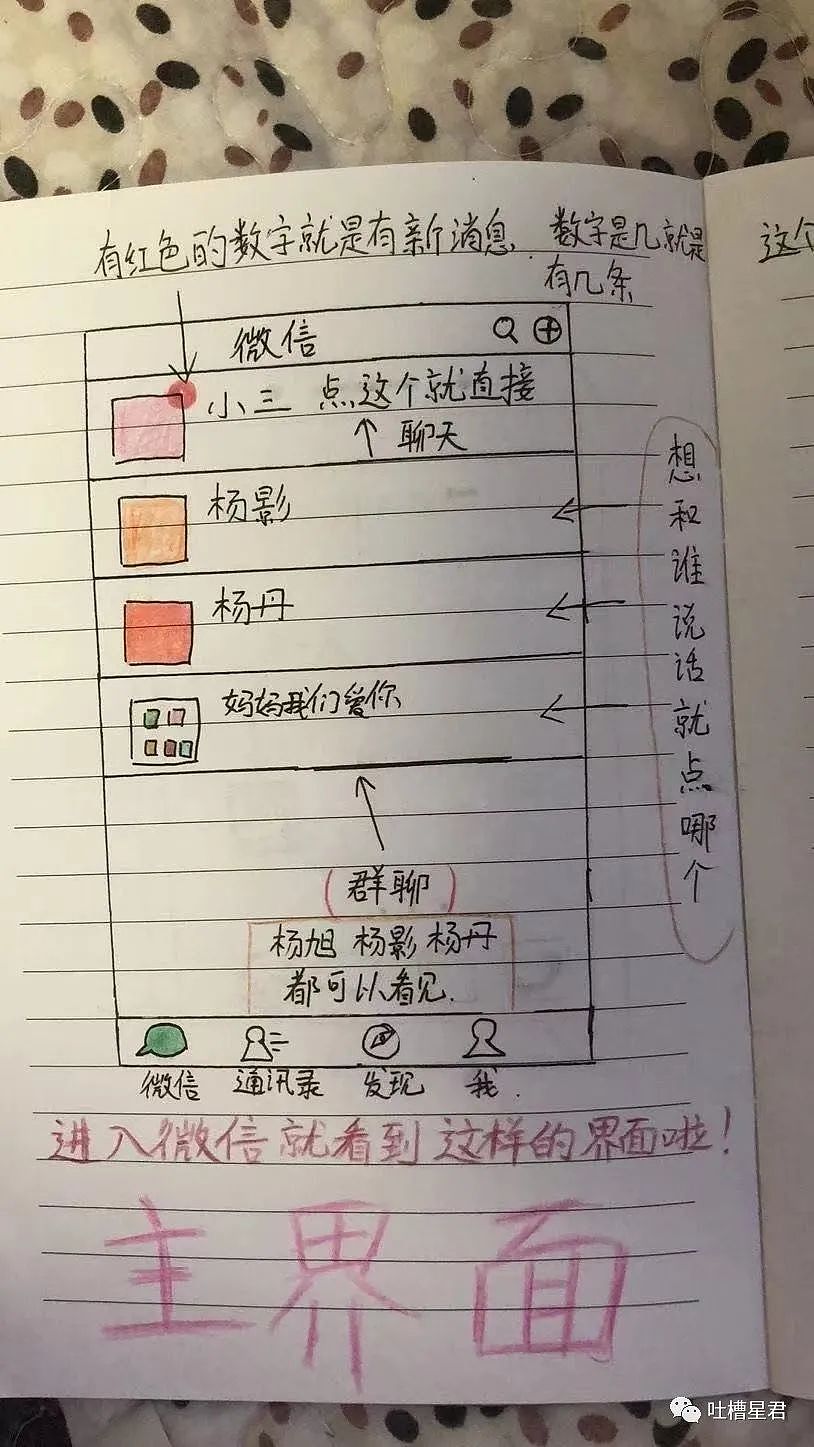 有红色的数字就是有新消息. 数字是几就是
有几条
这个
微信
小三 点这个就直接
聊天
杨影
杨丹
妈妈我们爱你
想和谁说话就点哪个
(群聊)
杨旭 杨影 杨丹
都可以看见.
微信 通讯录 发现 我.
进入微信就看到这样的界面啦!
主界面
吐槽星君